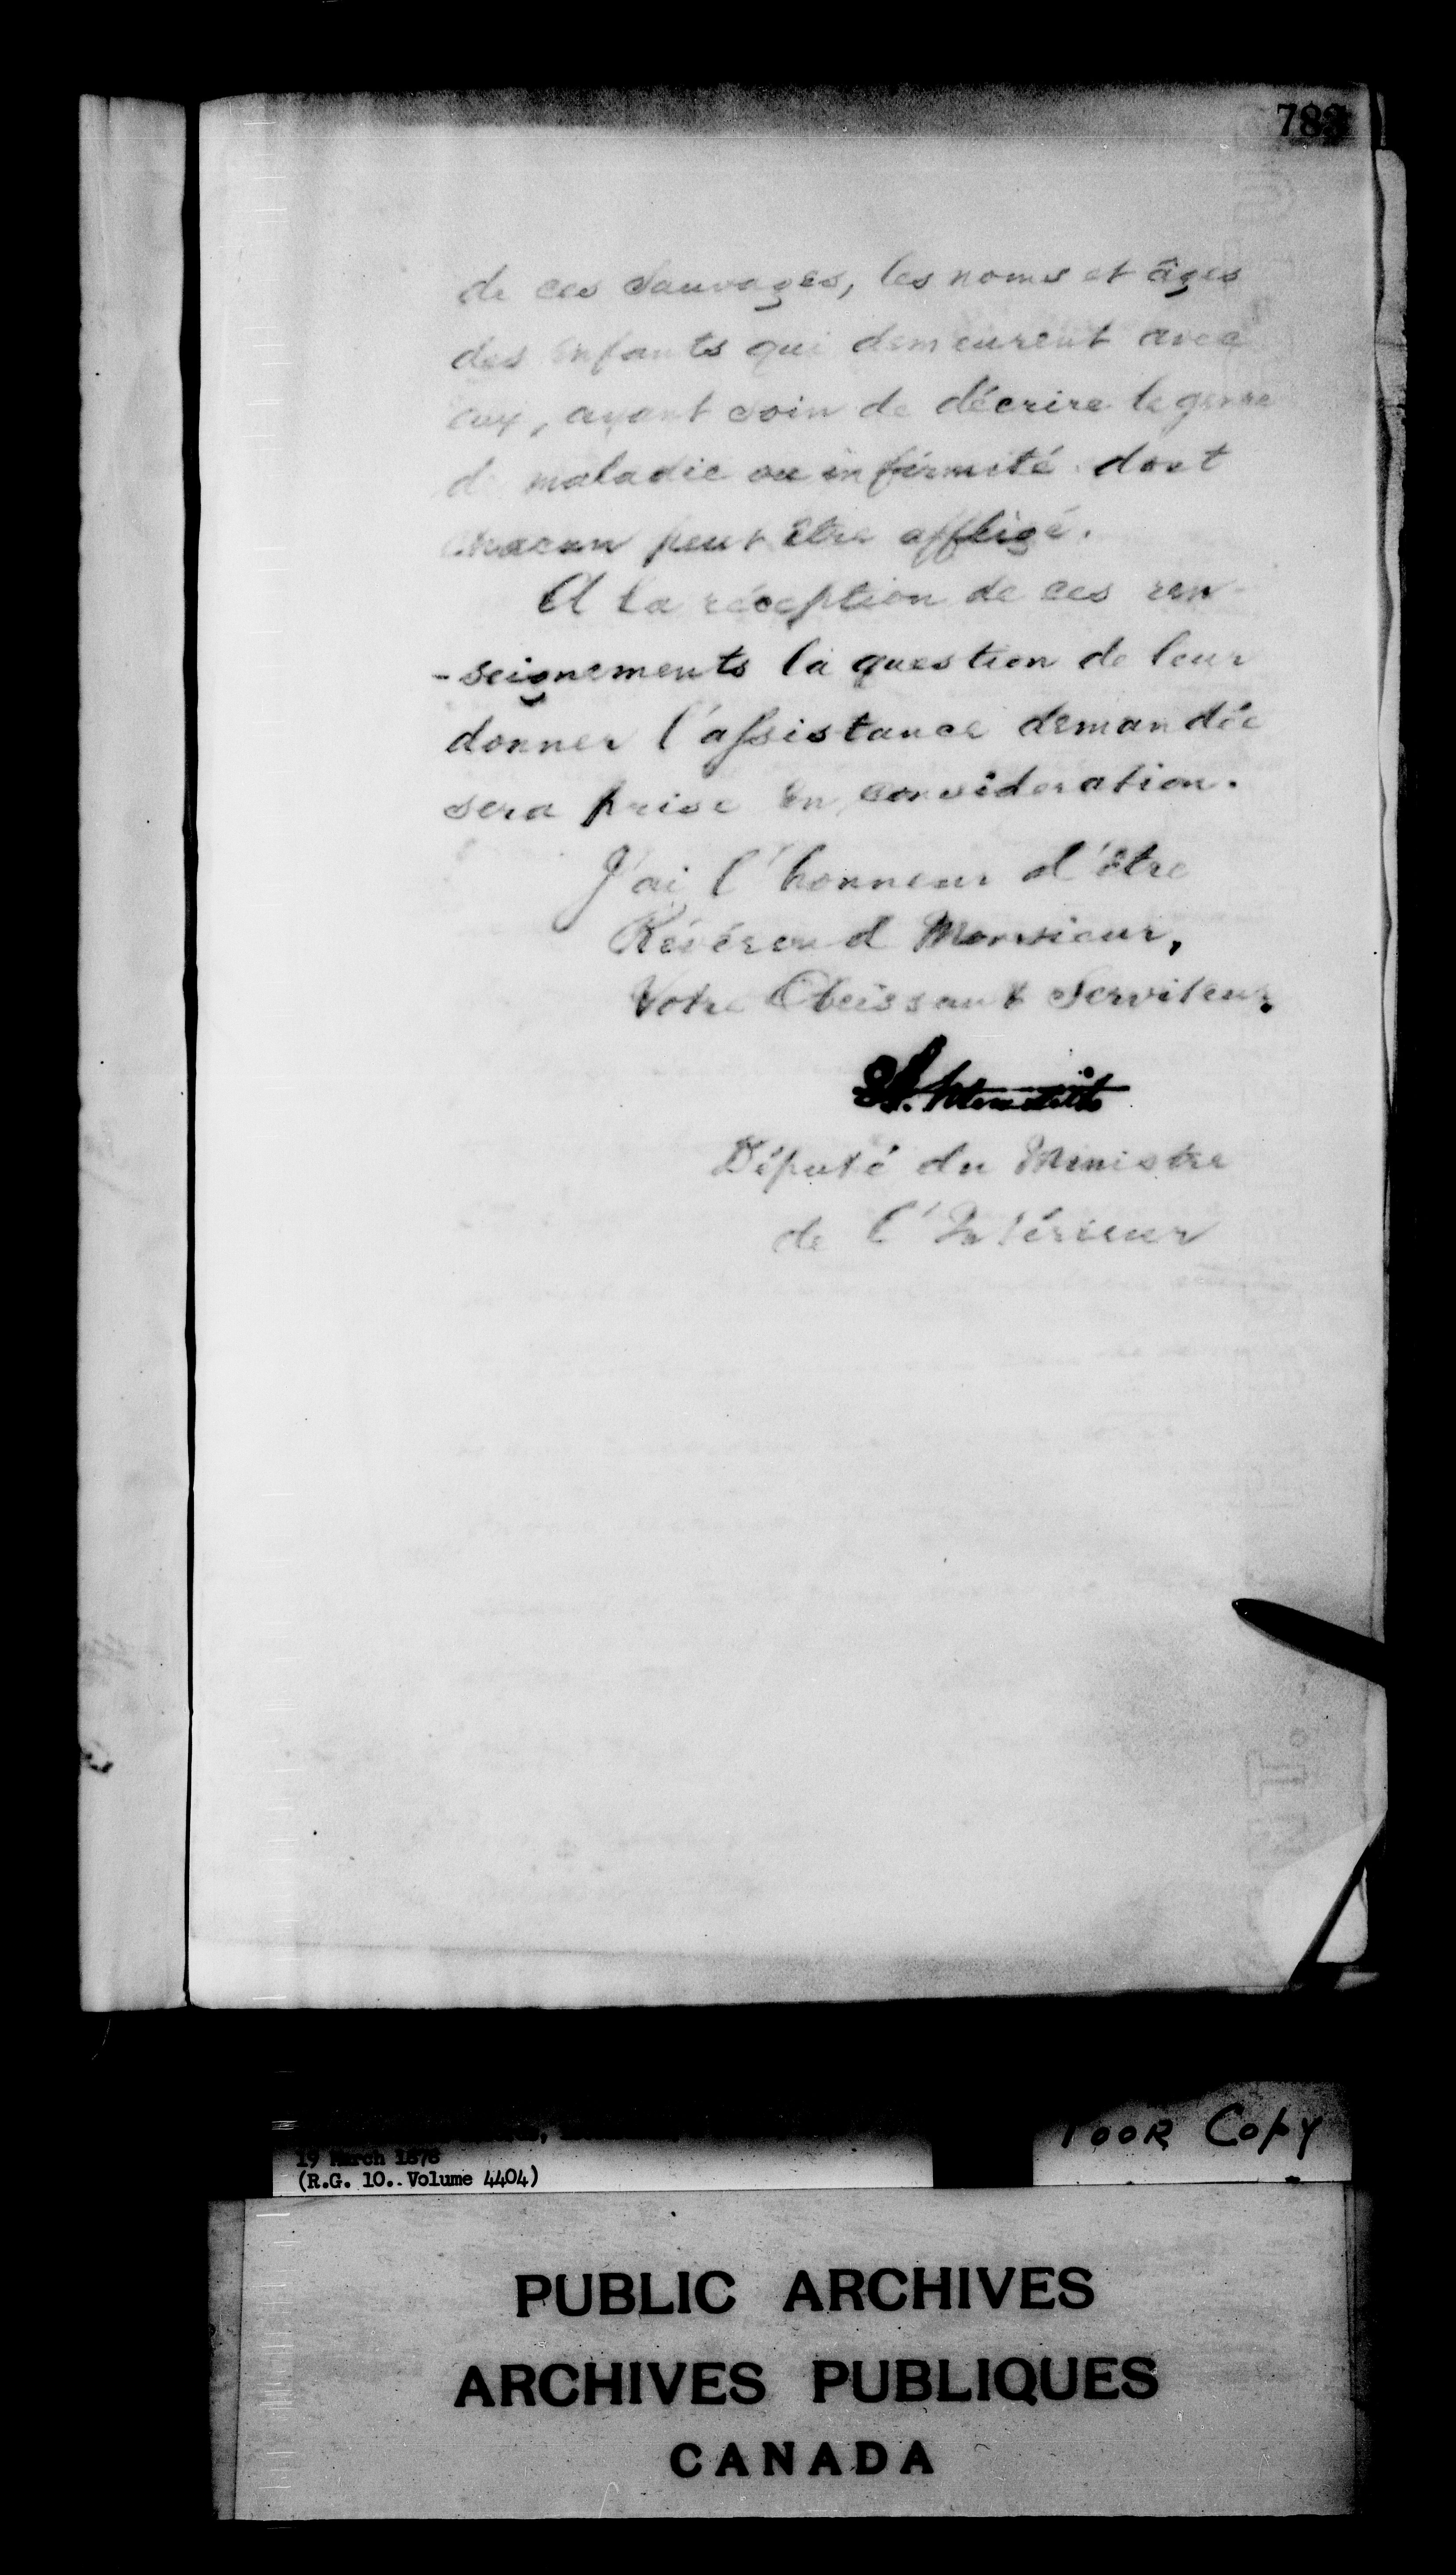 de ces Sauvages, les noms et âges
des enfants qui demeurent avec
eux, ayant soin de décrire le genre
de maladie ou infirmité dont
chacun peut être affligé.
A la réception de ces ren-
-seignements la question de leur
donner l'assistance demandée
sera prise en consideration.
J'ai l'honneur d'être
Révérend Monsieur,
Votre Obeissant Serviteur.
Meredith
Député du Ministre
de l'Intérieur
Poor Copy
19 March 1878
(R.G. 10. Volume 4404)
PUBLIC ARCHIVES
ARCHIVES PUBLIQUES
CANADA